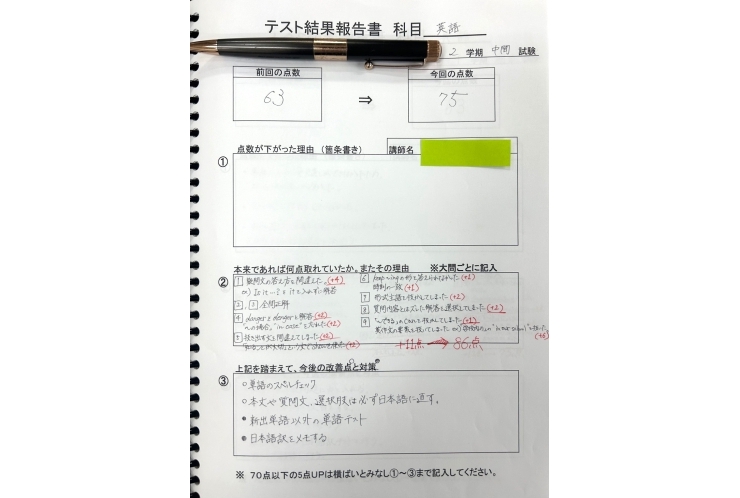 テスト結果報告書 科目 英語
2 学期 中間 試験
前回の点数
63
⇒
今回の点数
75
点数が下がった理由 (箇条書き)
講師名
①
本来であれば何点取れていたか。またその理由 ※大問ごとに記入
②
1 疑問文の答え方を間違えた。(+4)
2, 3 全問正解
4 dangerをdangerと解答(+2)
6 keep ~ingの形を答えられなかった(+1)
時制の一致(+1)
7 形式主語を抜かしてしまった(+2)
8 質問内容とはズレた解答を選択してしまった(+2)
+11点 → 86点
上記を踏まえて、今後の改善点と対策
③
○単語のスペルチェック
○本文や質問文、選択肢は必ず日本語に直す。
● 新出単語以外の単語テスト
● 日本語訳をメモする
※ 70点以下の5点UPは横ばいとみなし①~③まで記入してください。